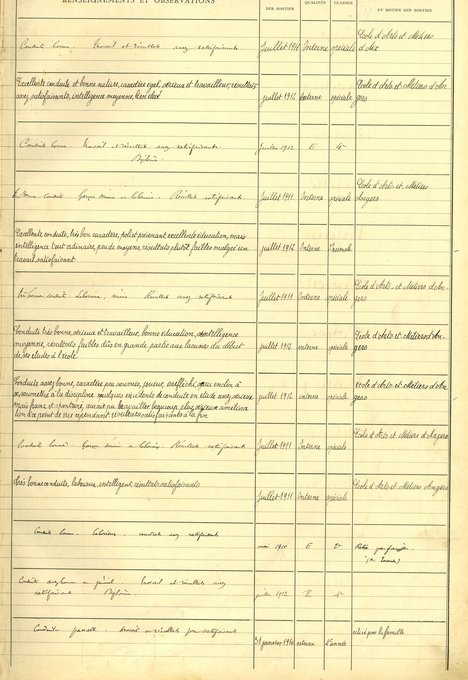 RENSEIGNEMENTS ET OBSERVATIONS
DES SORTIES
QUALITÉS
CLASSES
ET MOTIFS DES SORTIES
Conduite bonne. Travail et résultats assez satisfaisants
Juillet 1911 Interne spéciale
Ecole d'Arts et Métiers
d'Aix
Excellente conduite et bonne nature, caractère égal, sérieux et travailleur, résultats
assez satisfaisants, intelligence moyenne, bien élevé
juillet 1912 Externe spéciale
Ecole d'Arts et Métiers d'An-
gers
Conduite bonne. Travail et résultats assez satisfaisants
Diplôme
Juillet 1912 E 4e
conduite. Garçon sérieux et laborieux. Résultats satisfaisants
Juillet 1911 Interne spéciale
Ecole d'Arts et Métiers
Angers
Excellente conduite, très bon caractère, poli et prévenant, excellente éducation, mais
intelligence tout ordinaire, peu de moyens, résultats plutôt faibles malgré un
travail satisfaisant
juillet 1912 Interne
Très bonne conduite. Laborieux, sérieux. Résultats assez satisfaisants
Juillet 1911 Interne spéciale
Ecole d'Arts et Métiers d'An-
gers
Conduite très bonne, sérieux et travailleur, bonne éducation, intelligence
moyenne, résultats faibles dûs en grande partie aux lacunes du début
de ses études à l'école
juillet 1912 interne spéciale
Ecole d'Arts et Métiers d'An-
gers
Conduite assez bonne, caractère peu soumis, joueur, irréfléchi, peu enclin à
se soumettre à la discipline, quelques incidents de conduite en étude assez sérieux
mais franc et spontané, aurait pu travailler beaucoup plus, sérieuse améliora-
tion à ce point de vue cependant résultats satisfaisants à la fin
juillet 1912 interne spéciale
école d'Arts et Métiers d'An-
gers
Conduite bonne. Garçon sérieux et laborieux. Résultats satisfaisants
Juillet 1911 Interne spéciale
Ecole d'Arts et Métiers d'Angers
Très bonne conduite, laborieux, intelligent, résultats satisfaisants
Juillet 1911 Interne spéciale
Ecole d'Arts et Métiers Angers
Conduite bonne. Laborieux. résultats assez satisfaisants
mai 1910 E 2e
Retiré par famille
Conduite assez bonne en général. Travail et résultats assez
satisfaisants Diplôme
1912 4e
Conduite passable. travail et résultats peu satisfaisants
31 janvier 1910 externe 2e année
retiré par la famille